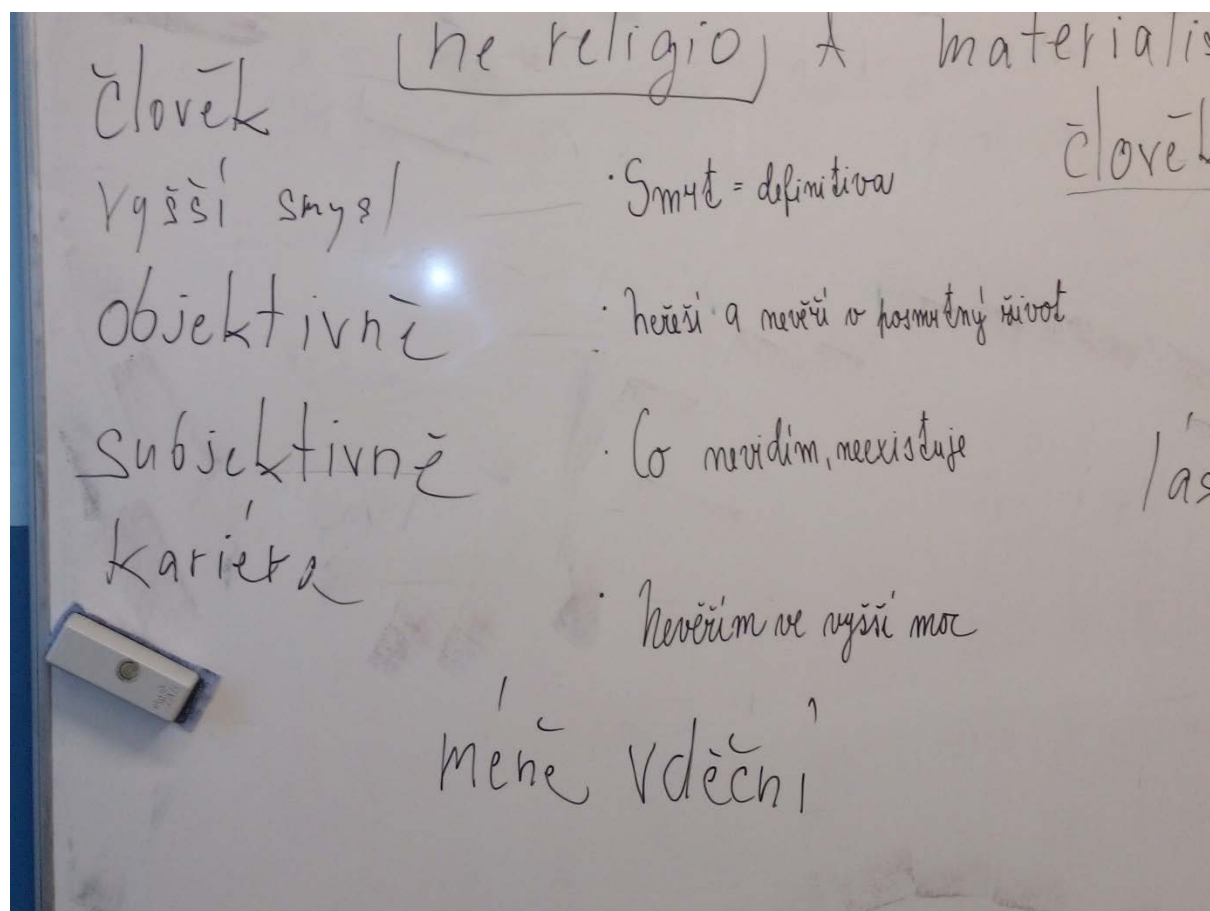 ne religio A materialis
člověk
vyšší smysl
objektivně
subjektivně
kariéra
· Smrt = definitiva
· neřeší a nevěří v posmrtný život
· Co nevidím, neexistuje
· Nevěřím ve vyšší moc
méně vděční
člověk
lás